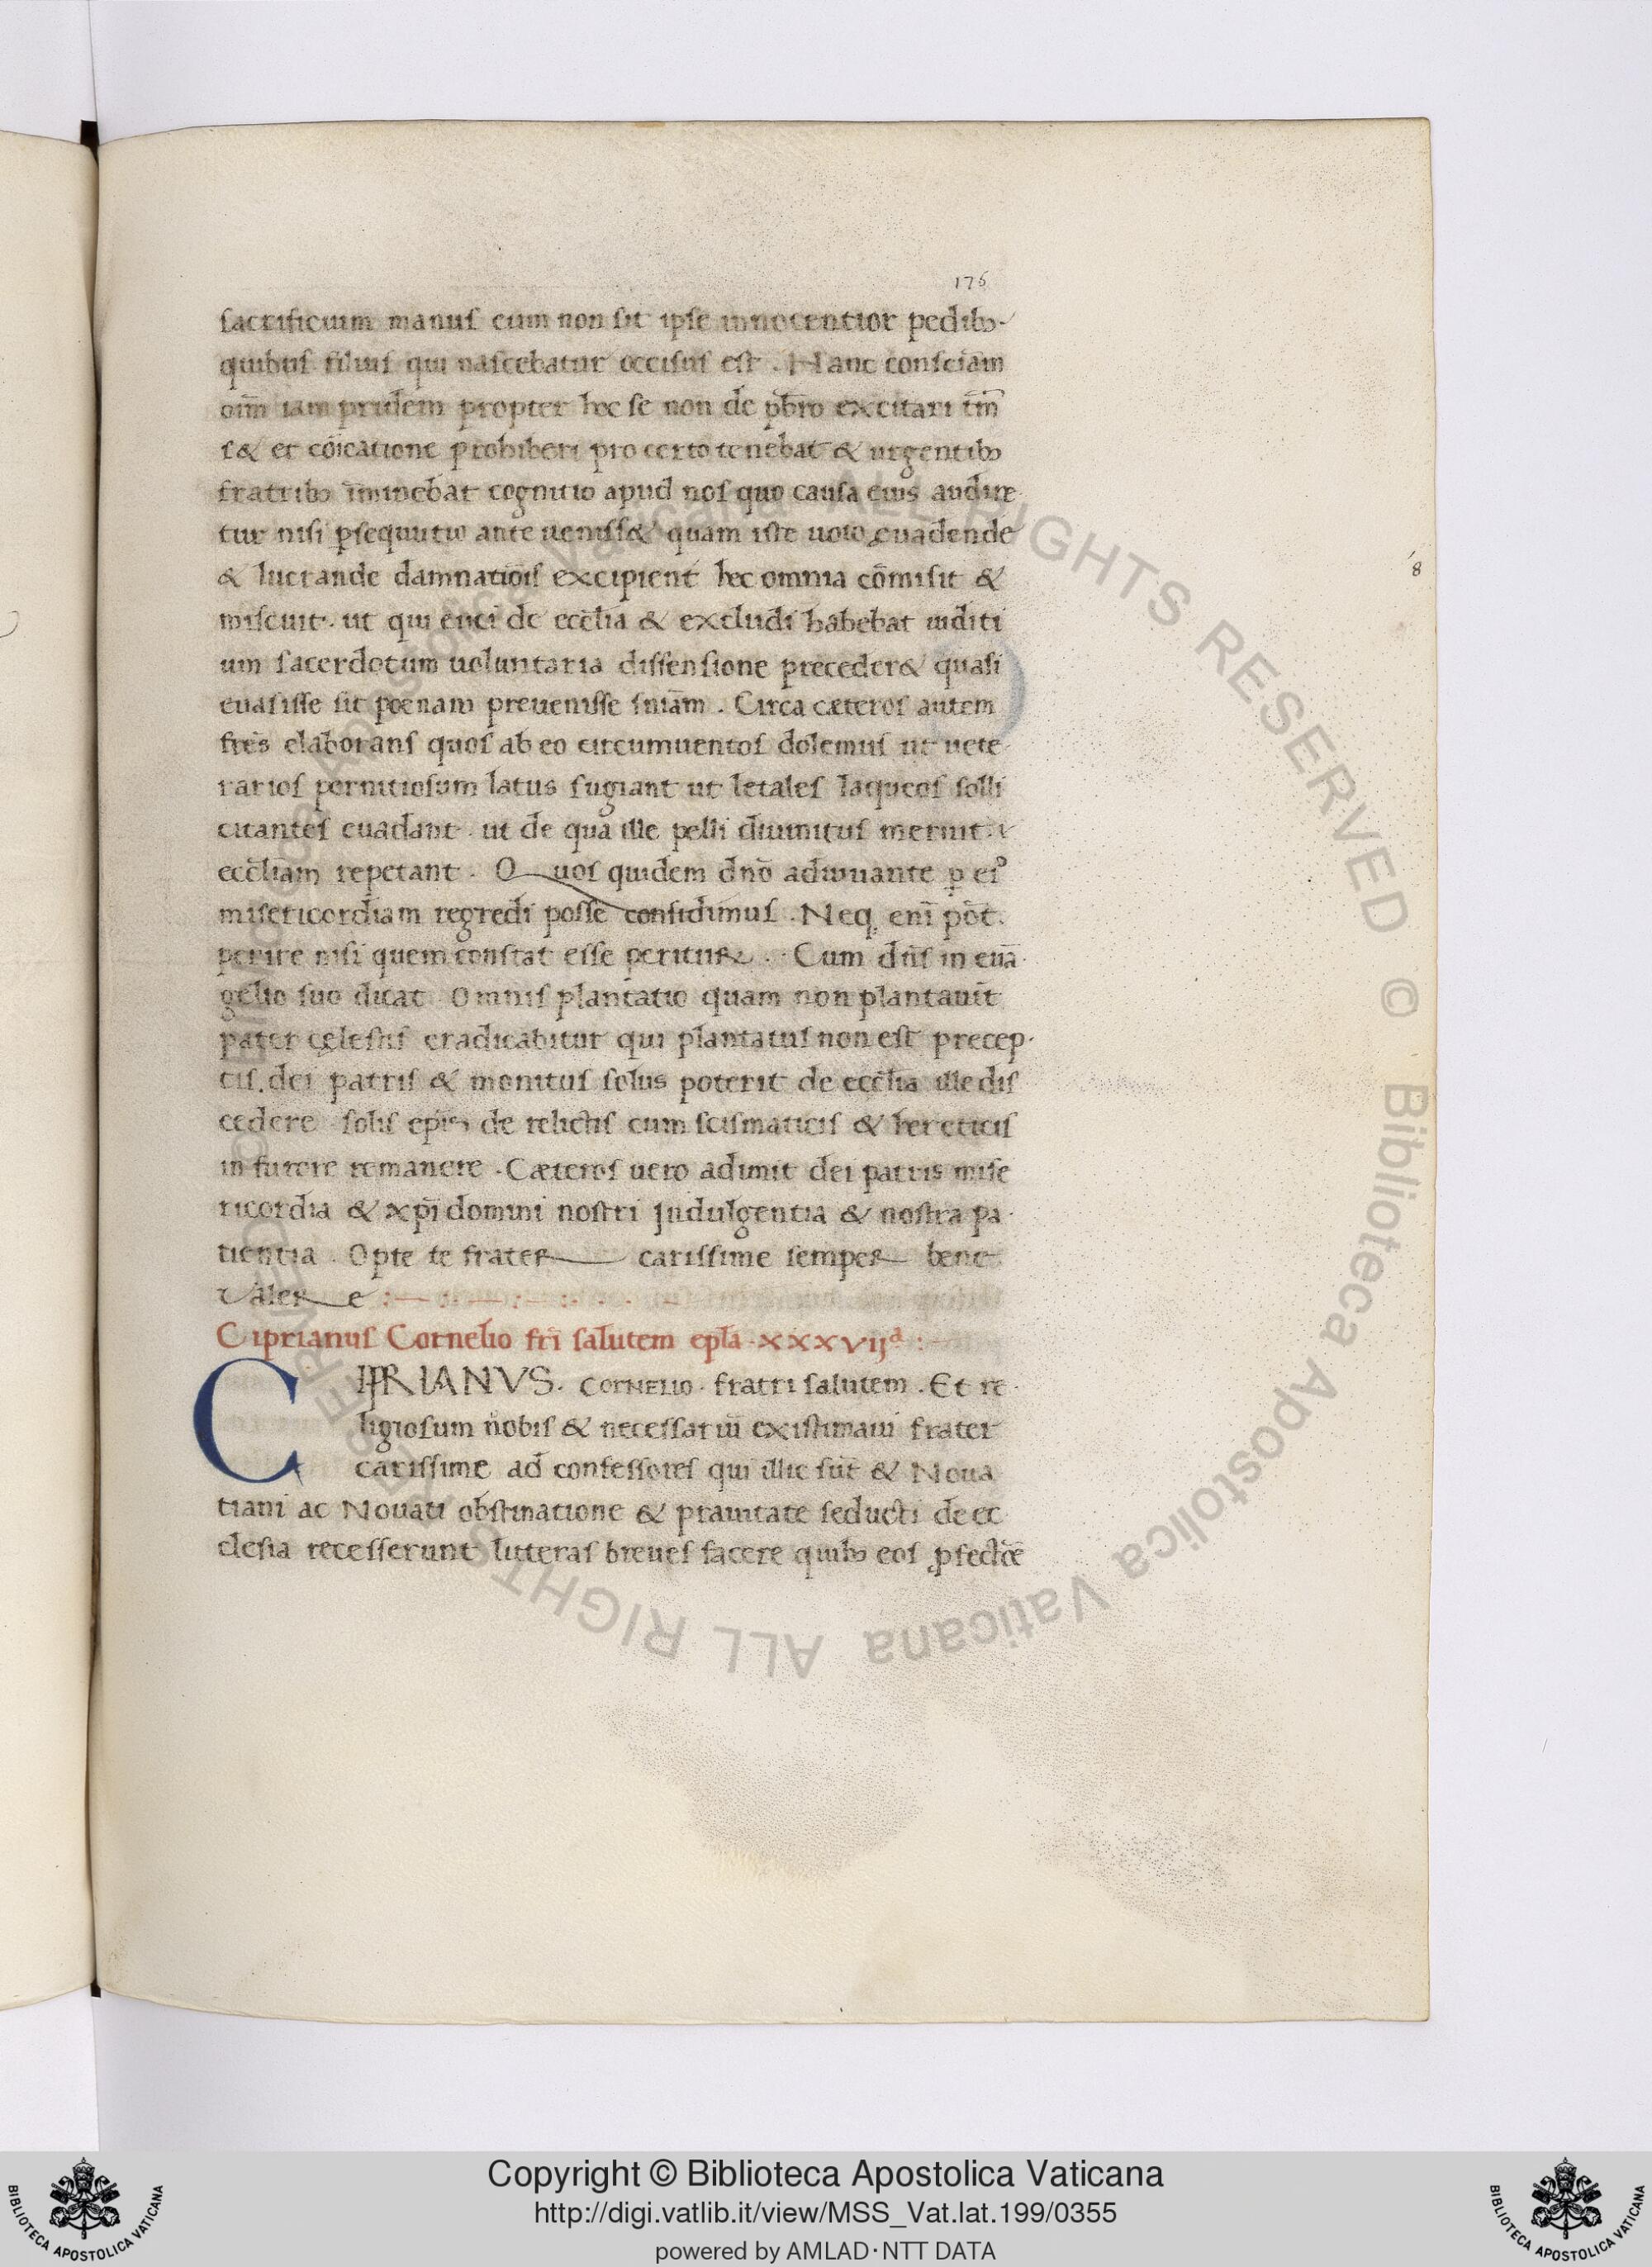 176
sacrificium manus cum non sit ipse innocentior pedib;
quibus filius qui nascebatur occisus est . Hanc consciam̄
oīm iam pridem propter hec se non de pb̄ro excitari tm̄
s& et cōicatione prohiberi pro certo tenebat & urgentib;
fratrib; īminebat cognitio apud nos quo causa eius audire
tur nisi ꝑsequutio ante ueniss& quam iste uoto euadende
& lucrande damnatiōis excipient hec omnia cōmisit &
miscuit. ut qui eiici de eccl̄ia & excludi habebat iuditi
um sacerdotum uoluntaria dissensione preceder& quasi
euasisse sit poenam preuenisse sn̄iam . Circa cæteros autem
frēs elaborans quos ab eo circumuentos dolemus ut uete
rarios pernitiosum latus fugiant ut letales laqueos solli
citantes euadant . ut de qua ille pelli diuinitus meruit .
eccl̄iam repetant . Quos quidem dn̄o adiuuante ꝑ ei⁹
misericordiam regredi posse confidimus . Neq; enī pōt .
perire nisi quem constat esse perituꝝ . Cum dn̄s in euā
gelio suo dicat . Omnis plantatio quam non plantauīt
pater cęlestis eradicabitur qui plantatus non est precep
tis . dei patris & monitus solus poterit de eccl̄ia ille dis
cedere . solis epīs de relictis cum scismaticis & hereticis
in furore remanere . Cæteros uero adimit dei patris mise
ricordia & xp̄i domini nostri Indulgentia & nostra pa
tientia . Opte te frater carissime semper bene
Valere :
Ciprianus Cornelio frī salutem epl̄a . XXXVIJᵈ :
CIPRIANVS . CORNELIO . fratri salutem . Et re
ligiosum nobis & necessariū existimaui frater
carissime ad confessores qui illic sūt & Noua
tiani ac Nouati obstinatione & prauitate seducti de ec
clesia recesserunt litteras breues facere quib; eos ꝓfectōe
8
Biblioteca Apostolica Vaticana ALL RIGHTS RESERVED © Biblioteca Apostolica Vaticana ALL RIGHTS RESERVED ©
Copyright © Biblioteca Apostolica Vaticana
http://digi.vatlib.it/view/MSS_Vat.lat.199/0355
powered by AMLAD·NTT DATA
BIBLIOTECA APOSTOLICA VATICANA
BIBLIOTECA APOSTOLICA VATICANA